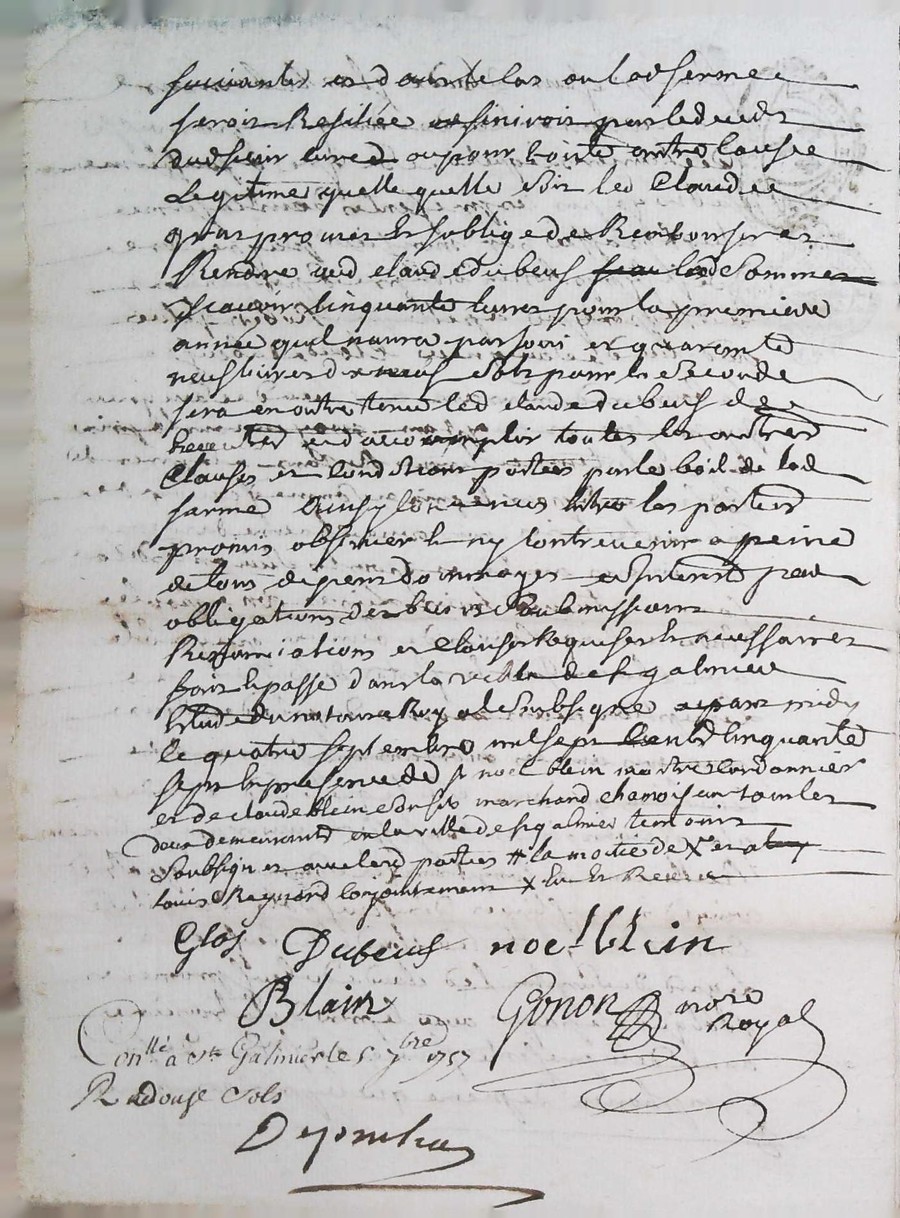 suivante et dans le cas ou lad ferme
seroit Resiliée et finiroit par le deceds
dud sieur curé ou pour toute autre cause
Legitime quelle quelle soit led Claude
promet et soblige de Rembourser et
Rendre aud claude dubeuf lad Somme
scavoir cinquante livres pour la premiere
année quil naura pas joui et quarante
neuf livres dix neuf sols pour la seconde
sera en outre tenu led claude dubeuf de
et daccomplir toutes les autres
Clauses et Conditions portées par le bail de lad
ferme Ainsy Convenus entre les parties
promis observer et ny Contrevenir a peine
de tous depens dommages et Interets par
obligations de biens Soubmissions
Renonciations et Clauses Requises et necessaires
fait et passé dans la ville de st galmier
Etude du notaire Royal Soubsigné apres midy
le quatre septembre mil sept Cents Cinquante
sept en presence de sr noel blein maitre Cordonnier
et de claude blein marchand chamoiseur tous les
deux demeurants en la ville de st galmier temoins
Soubsignes avec les parties # la moitié de X et a
Louis Regnard Conjointement X
Glas Dubeuf noel blein
Blain Gonon nore
Royal
Conllé à st Galmier le 5 7bre 1757
R douze sols